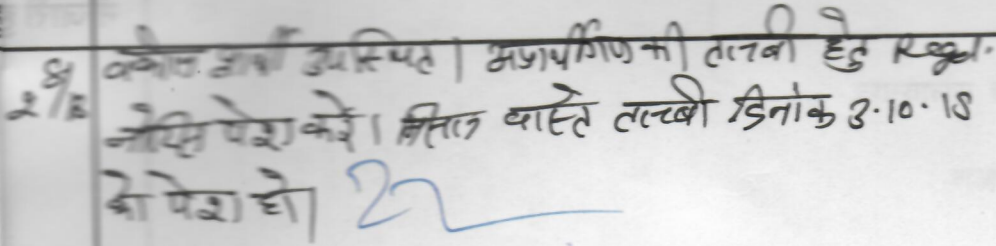 वकील प्रार्थी उपस्थित। अप्रार्थीगण की तलबी हेतु Regd.
नोटिस पेश करें। मिसल वास्ते तलबी दिनांक 3.10.18
को पेश हो।